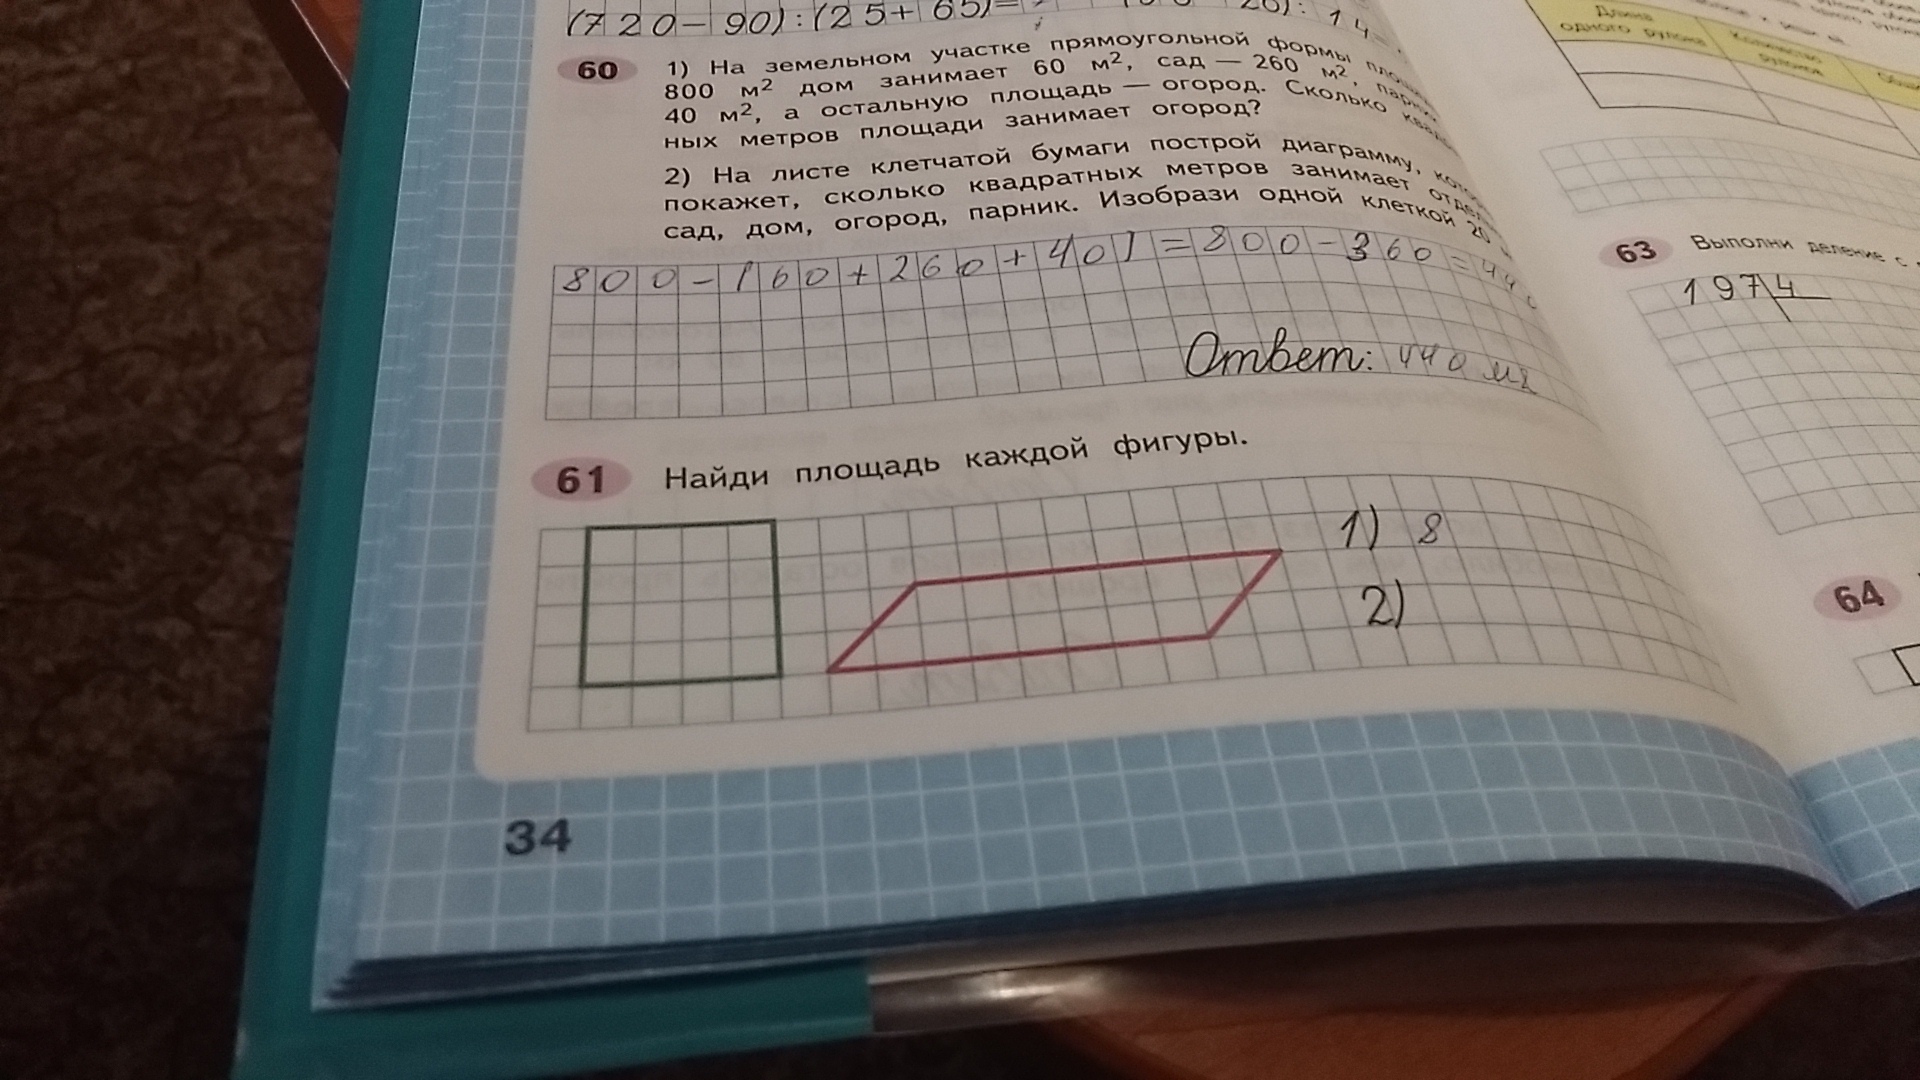 (720-90):(25+65)=
60 1) На земельном участке прямоугольной формы
800 м² дом занимает 60 м², сад — 260 м²,
40 м², а остальную площадь — огород. Сколько
ных метров площади занимает огород?
2) На листе клетчатой бумаги построй диаграмму,
покажет, сколько квадратных метров занимает
сад, дом, огород, парник. Изобрази одной клеткой 20
800-(60+260+40)=800-360=440
Ответ: 440 м2
61 Найди площадь каждой фигуры.
1) 8
2)
34
Длина одного рулона
Количество рулонов
63 Выполни деление с
197 4
64